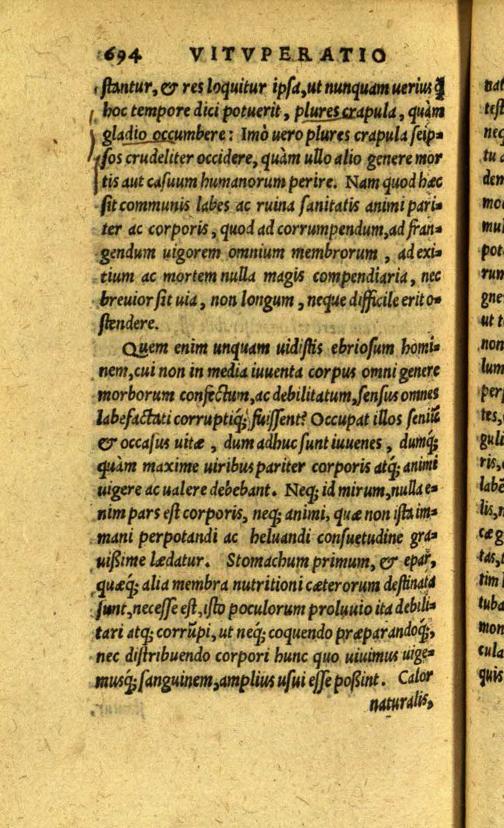 694 VITVPERATIO
stantur, & res loquitur ipsa, ut nunquam uerius q̃
hoc tempore dici potuerit, plures crapula, quàm
gladio occumbere: Imò uero plures crapula seip-
sos crudeliter occidere, quàm ullo alio genere mor
tis aut casuum humanorum perire. Nam quod hæc
sit communis labes ac ruina sanitatis animi pari-
ter ac corporis, quod ad corrumpendum, ad fran-
gendum uigorem omnium membrorum, ad exi-
tium ac mortem nulla magis compendiaria, nec
breuior sit uia, non longum, neque difficile erit o-
stendere.
Quem enim unquam uidistis ebriosum homi-
nem, cui non in media iuuenta corpus omni genere
morborum confectum, ac debilitatum, sensus omnes
labefactati corruptiq; fuissent? Occupat illos seniũ
& occasus uitæ, dum adhuc sunt iuuenes, dumq;
quàm maxime uiribus pariter corporis atq; animi
uigere ac ualere debebant. Neq; id mirum, nulla e-
nim pars est corporis, neq; animi, quæ non ista im-
mani perpotandi ac heluandi consuetudine gra-
uißime lædatur. Stomachum primum, & epar,
quæq; alia membra nutritioni cæterorum destinata
sunt, necesse est, isto poculorum proluuio ita debili-
tari atq; corrũpi, ut neq; coquendo præparandoq;,
nec distribuendo corpori hunc quo uiuimus uige-
musq; sanguinem, amplius usui esse poßint. Calor
naturalis,